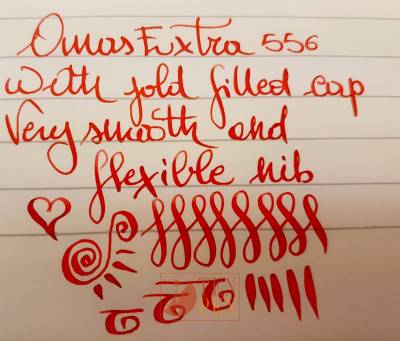 Omas Extra 556
with gold filled cap
Very smooth and
flexible nib